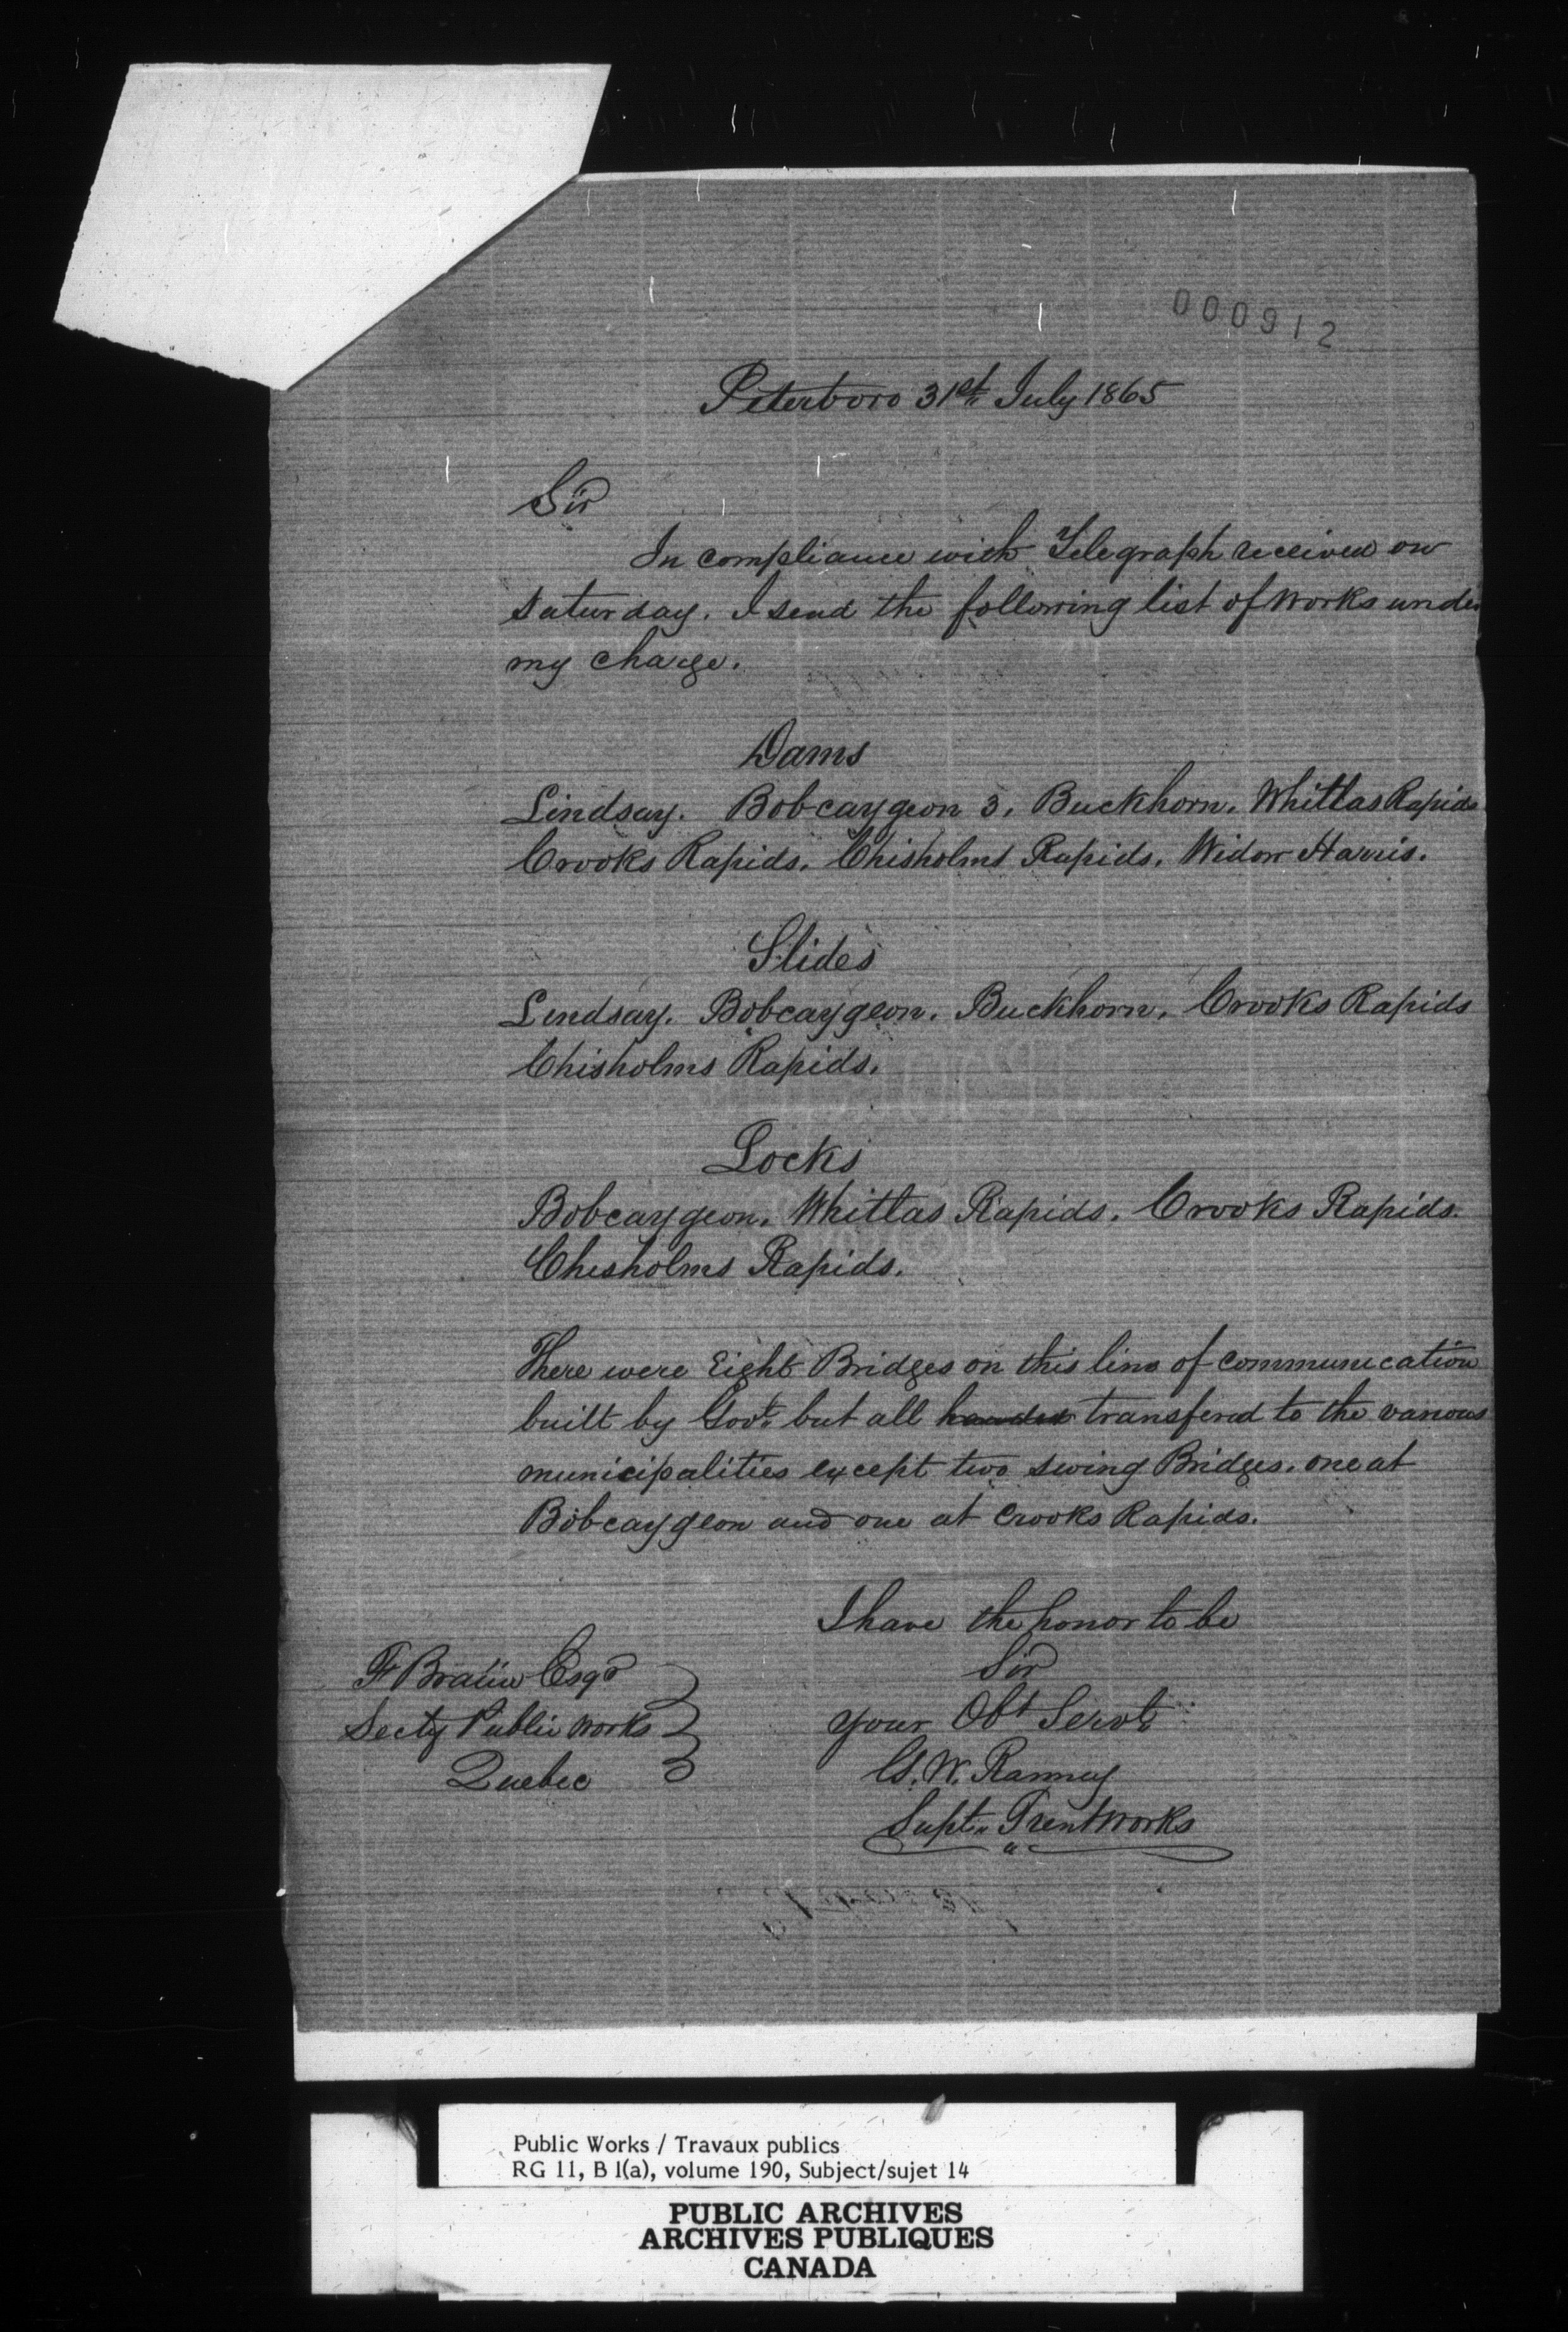 000912
Peterboro 31st July 1865
Sir
In compliance with Telegraph received on
Saturday. I send the following list of Works under
my charge.
Dams
Lindsay. Bobcaygeon 3. Buckhorn. Whitlas Rapids
Crooks Rapids. Chisholms Rapids. Widow Harris.
Slides
Lindsay. Bobcaygeon. Buckhorn. Crooks Rapids
Chisholms Rapids.
Locks
Bobcaygeon. Whitlas Rapids. Crooks Rapids.
Chisholms Rapids.
There were Eight Bridges on this line of communication
built by Govt. but all handed transfered to the various
municipalities except two swing Bridges. one at
Bobcaygeon and one at Crooks Rapids.
I have the honor to be
Sir
your Obt Servt
G. W. Ranney
Supt. Trent Works
F Braun Esqr
Secty Public Works
Quebec
Public Works / Travaux publics
RG 11, B 1(a), volume 190, Subject/sujet 14
PUBLIC ARCHIVES
ARCHIVES PUBLIQUES
CANADA